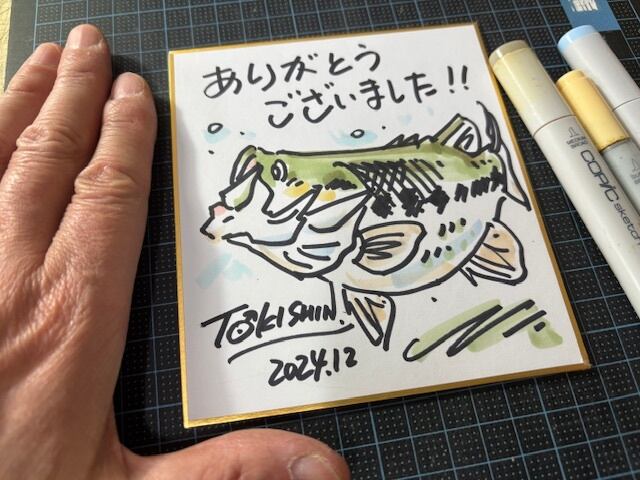 ありがとう
ございました!!
TOKISHIN.
2024.12
COPIC sketch